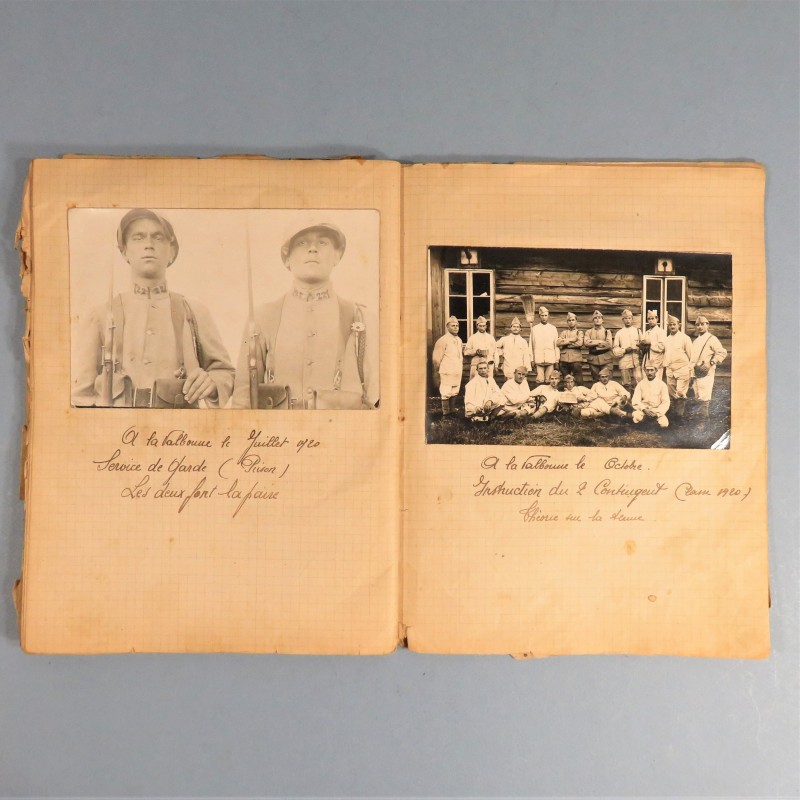 A la Valbonne le Juillet 1920
Service de Garde (Prison)
Les deux font la paire
A la Valbonne le Octobre.
Instruction du 2 Contingent (Classe 1920)
Théorie sur la tenue.